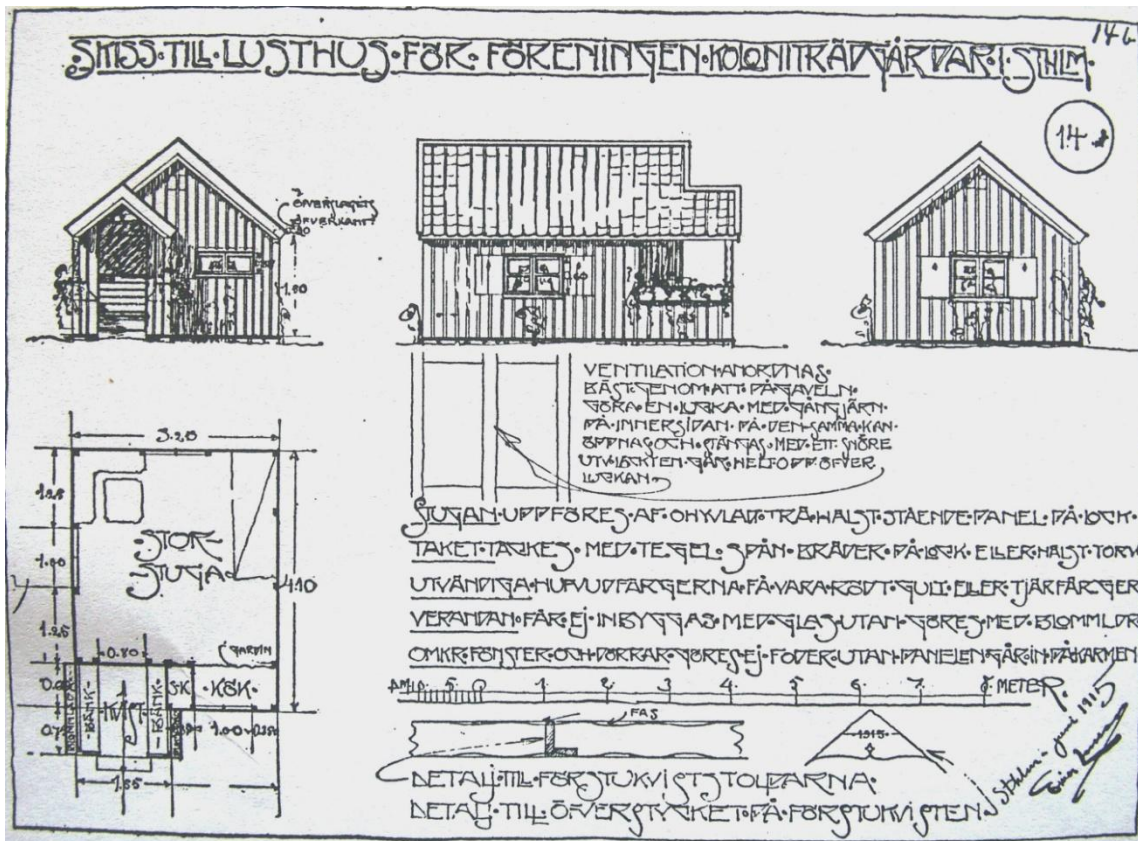 146
SKISS·TILL·LUSTHUS·FÖR·FÖRENINGEN·KOLONITRÄDGÅRDAR·I·STHLM·
14
ÖFVERSLAGETS
ÖFVERKANT
1.80
VENTILATION·ANORDNAS·
BÄST·GENOM·ATT·PÅ·GAVELN·
GÖRA·EN·LUCKA·MED·GÅNGJÄRN·
PÅ·INNERSIDAN·PÅ·DEN·SAMMA·KAN·
ÖPPNAS OCH·STÄNGAS·MED·ETT·SNÖRE
GÅR·HELT·OPP·ÖFVER
LUCKAN·
3.20
1.25
1.00
1.25
4.10
STOR
STUGA·
0.80
GARDIN
BÄNK·
KVIST
·BÄNK·
SK
·KÖK·
1.00
1.85
STUGAN·UPPFÖRES·AF·OHYVLAD·TRÄ·HÄLST·STÅENDE·PANEL·PÅ·LOCK·
TAKET·TÄCKES·MED·TEGEL·SPÅN·BRÄDER·PÅ·LOCK·ELLER·HÄLST·TORV
UTVÄNDIGA·HUFVUDFÄRGERNA·FÅ·VARA·RÖDT·GULT·ELLER·TJÄRFÄRGER
VERANDAN·FÅR·EJ·INBYGGAS·MED·GLAS·UTAN·GÖRES·MED·BLOMMLDR
OMKR·FÖNSTER·OCH·DÖRRAR·GÖRES·EJ·FODER·UTAN·PANELEN·GÅR·IN·PÅ·KARMEN
5 0 1 2 3 4 5 6 7 8 METER.
FAS
·1915·
DETALJ·TILL·FÖRSTUKVISTSTOLPARNA·
DETALJ·TILL·ÖFVERSTYCKET·PÅ·FÖRSTUKVISTEN
Sthlm - juni 1915